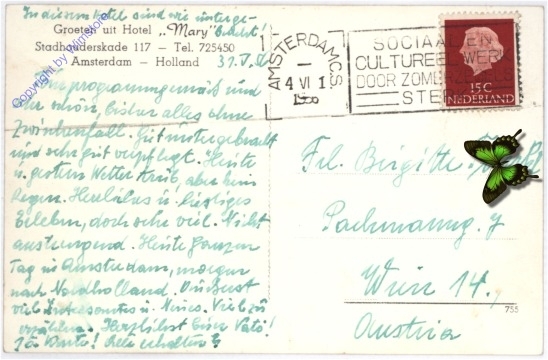 In diesem Hotel sind wir unterge-
bracht!
Groeten uit Hotel „Mary”
Stadhouderskade 117 — Tel. 725450
Amsterdam — Holland
31.V.
Copyright by Wimstore
programmgemäß und
sehr schön, bisher alles ohne
Zwischenfall. Gut untergebracht
und sehr gut verpflegt. Heute
u. gestern Wetter trüb, aber kein
Regen. Herrliches u.
Erleben, doch sehr viel. Nicht
anstrengend. Heute ganzen
Tag in Amsterdam, morgen
nach Nordholland.
viel Interessantes u. Neues. Viel zu
erzählen. Herzlichst Euer Vati!
Karte! erhalten
AMSTERDAM C.S.
4 VI 1
1956
SOCIAAL EN
CULTUREEL WERK
DOOR ZOMERZEGELS
15C
NEDERLAND
Frl. Birgitte
Pachmanng. 7
Wien 14.,
Austria
755